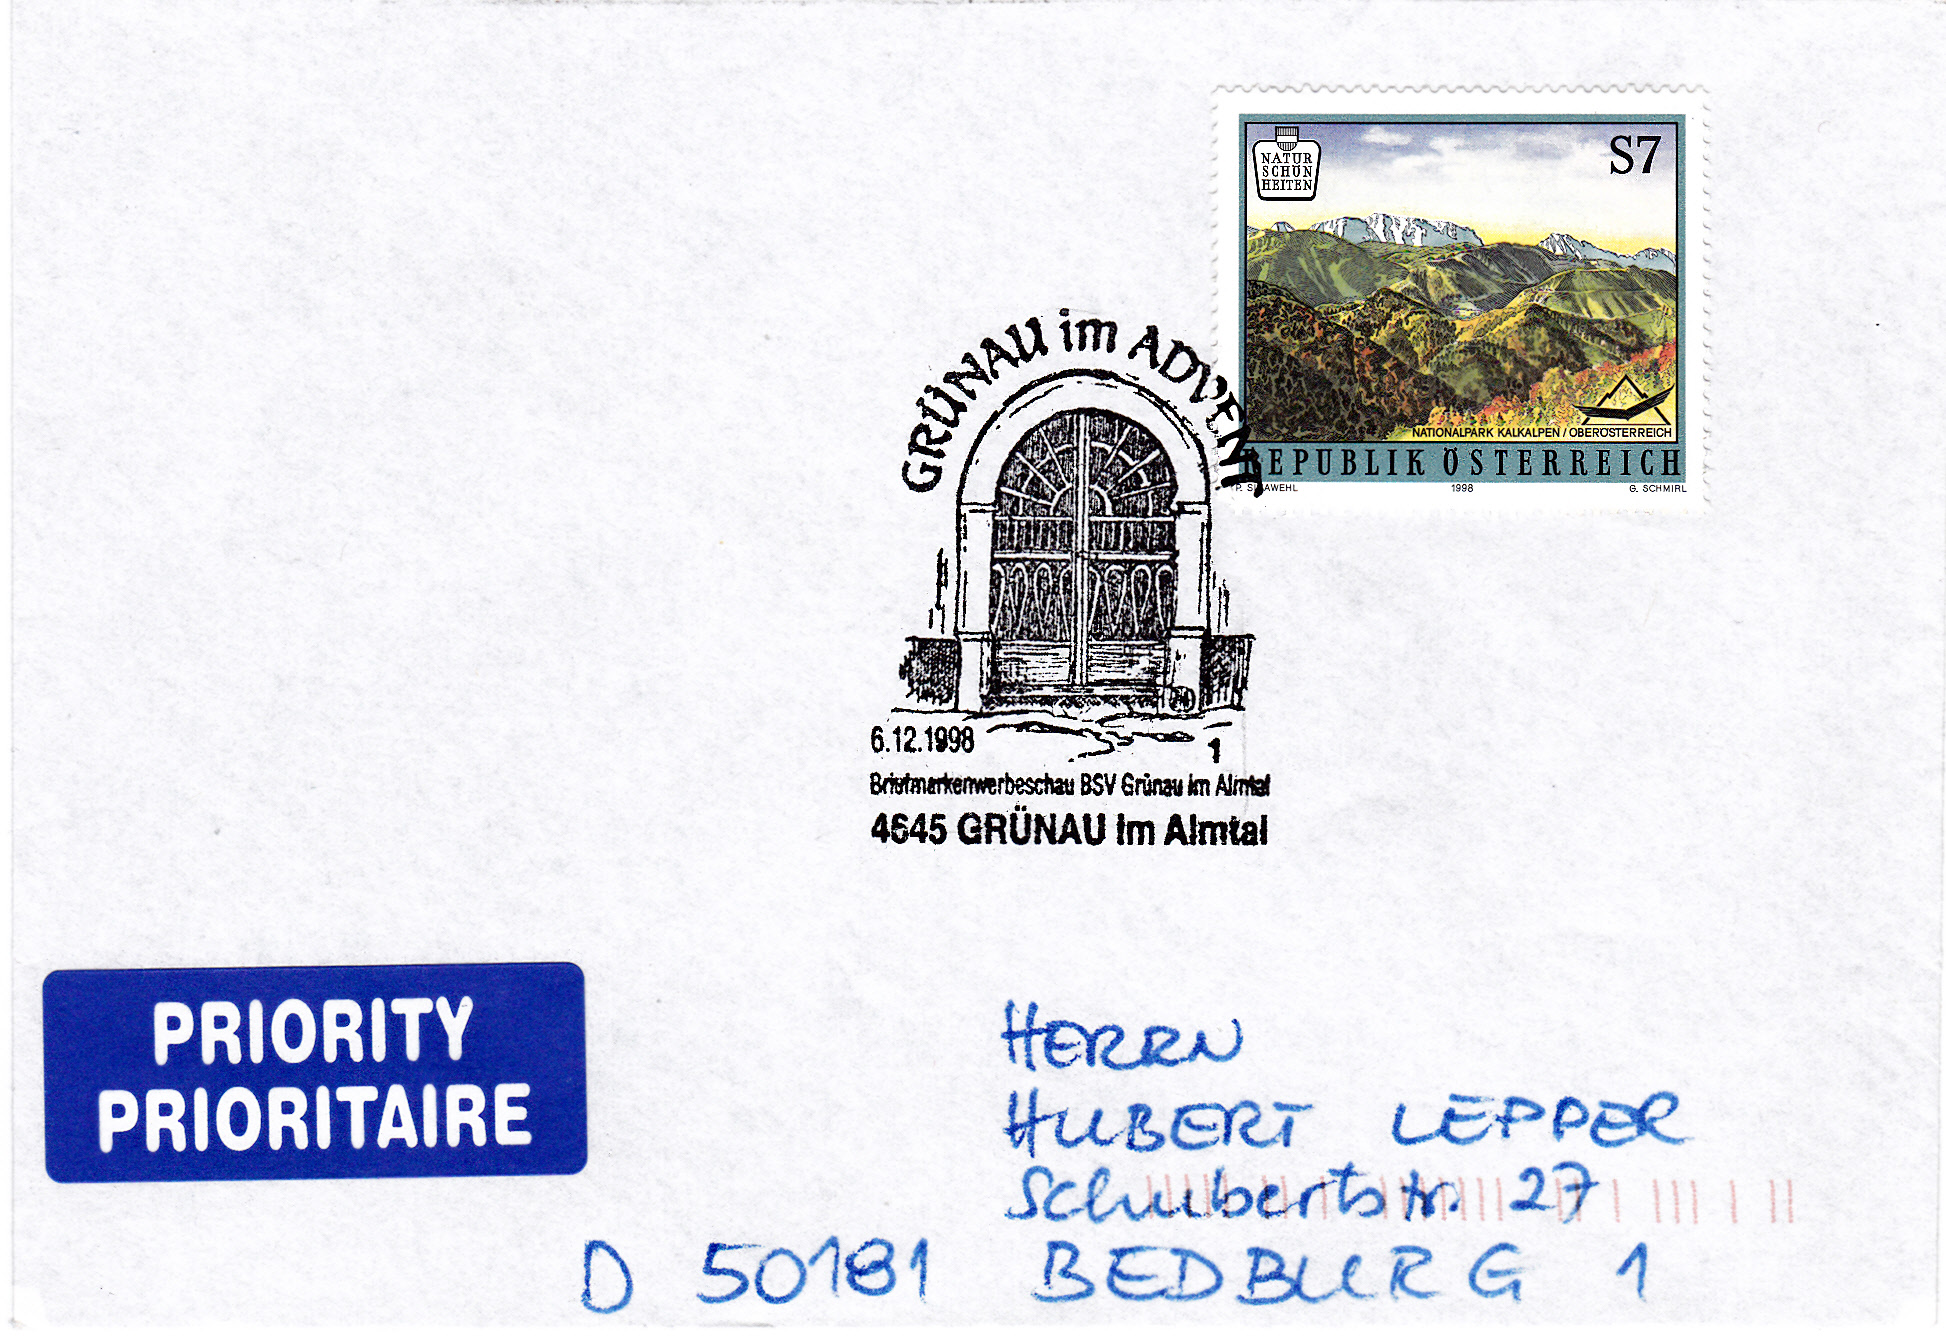 NATUR
SCHÖN
HEITEN
S7
NATIONALPARK KALKALPEN / OBERÖSTERREICH
REPUBLIK ÖSTERREICH
1998
G. SCHMIRL
GRÜNAU im ADVENT
6.12.1998 1
Briefmarkenwerbeschau BSV Grünau im Almtal
4645 GRÜNAU im Almtal
PRIORITY
PRIORITAIRE
HERRN
HUBERT LEPPER
Schubertstr. 27
D 50181 BEDBURG 1